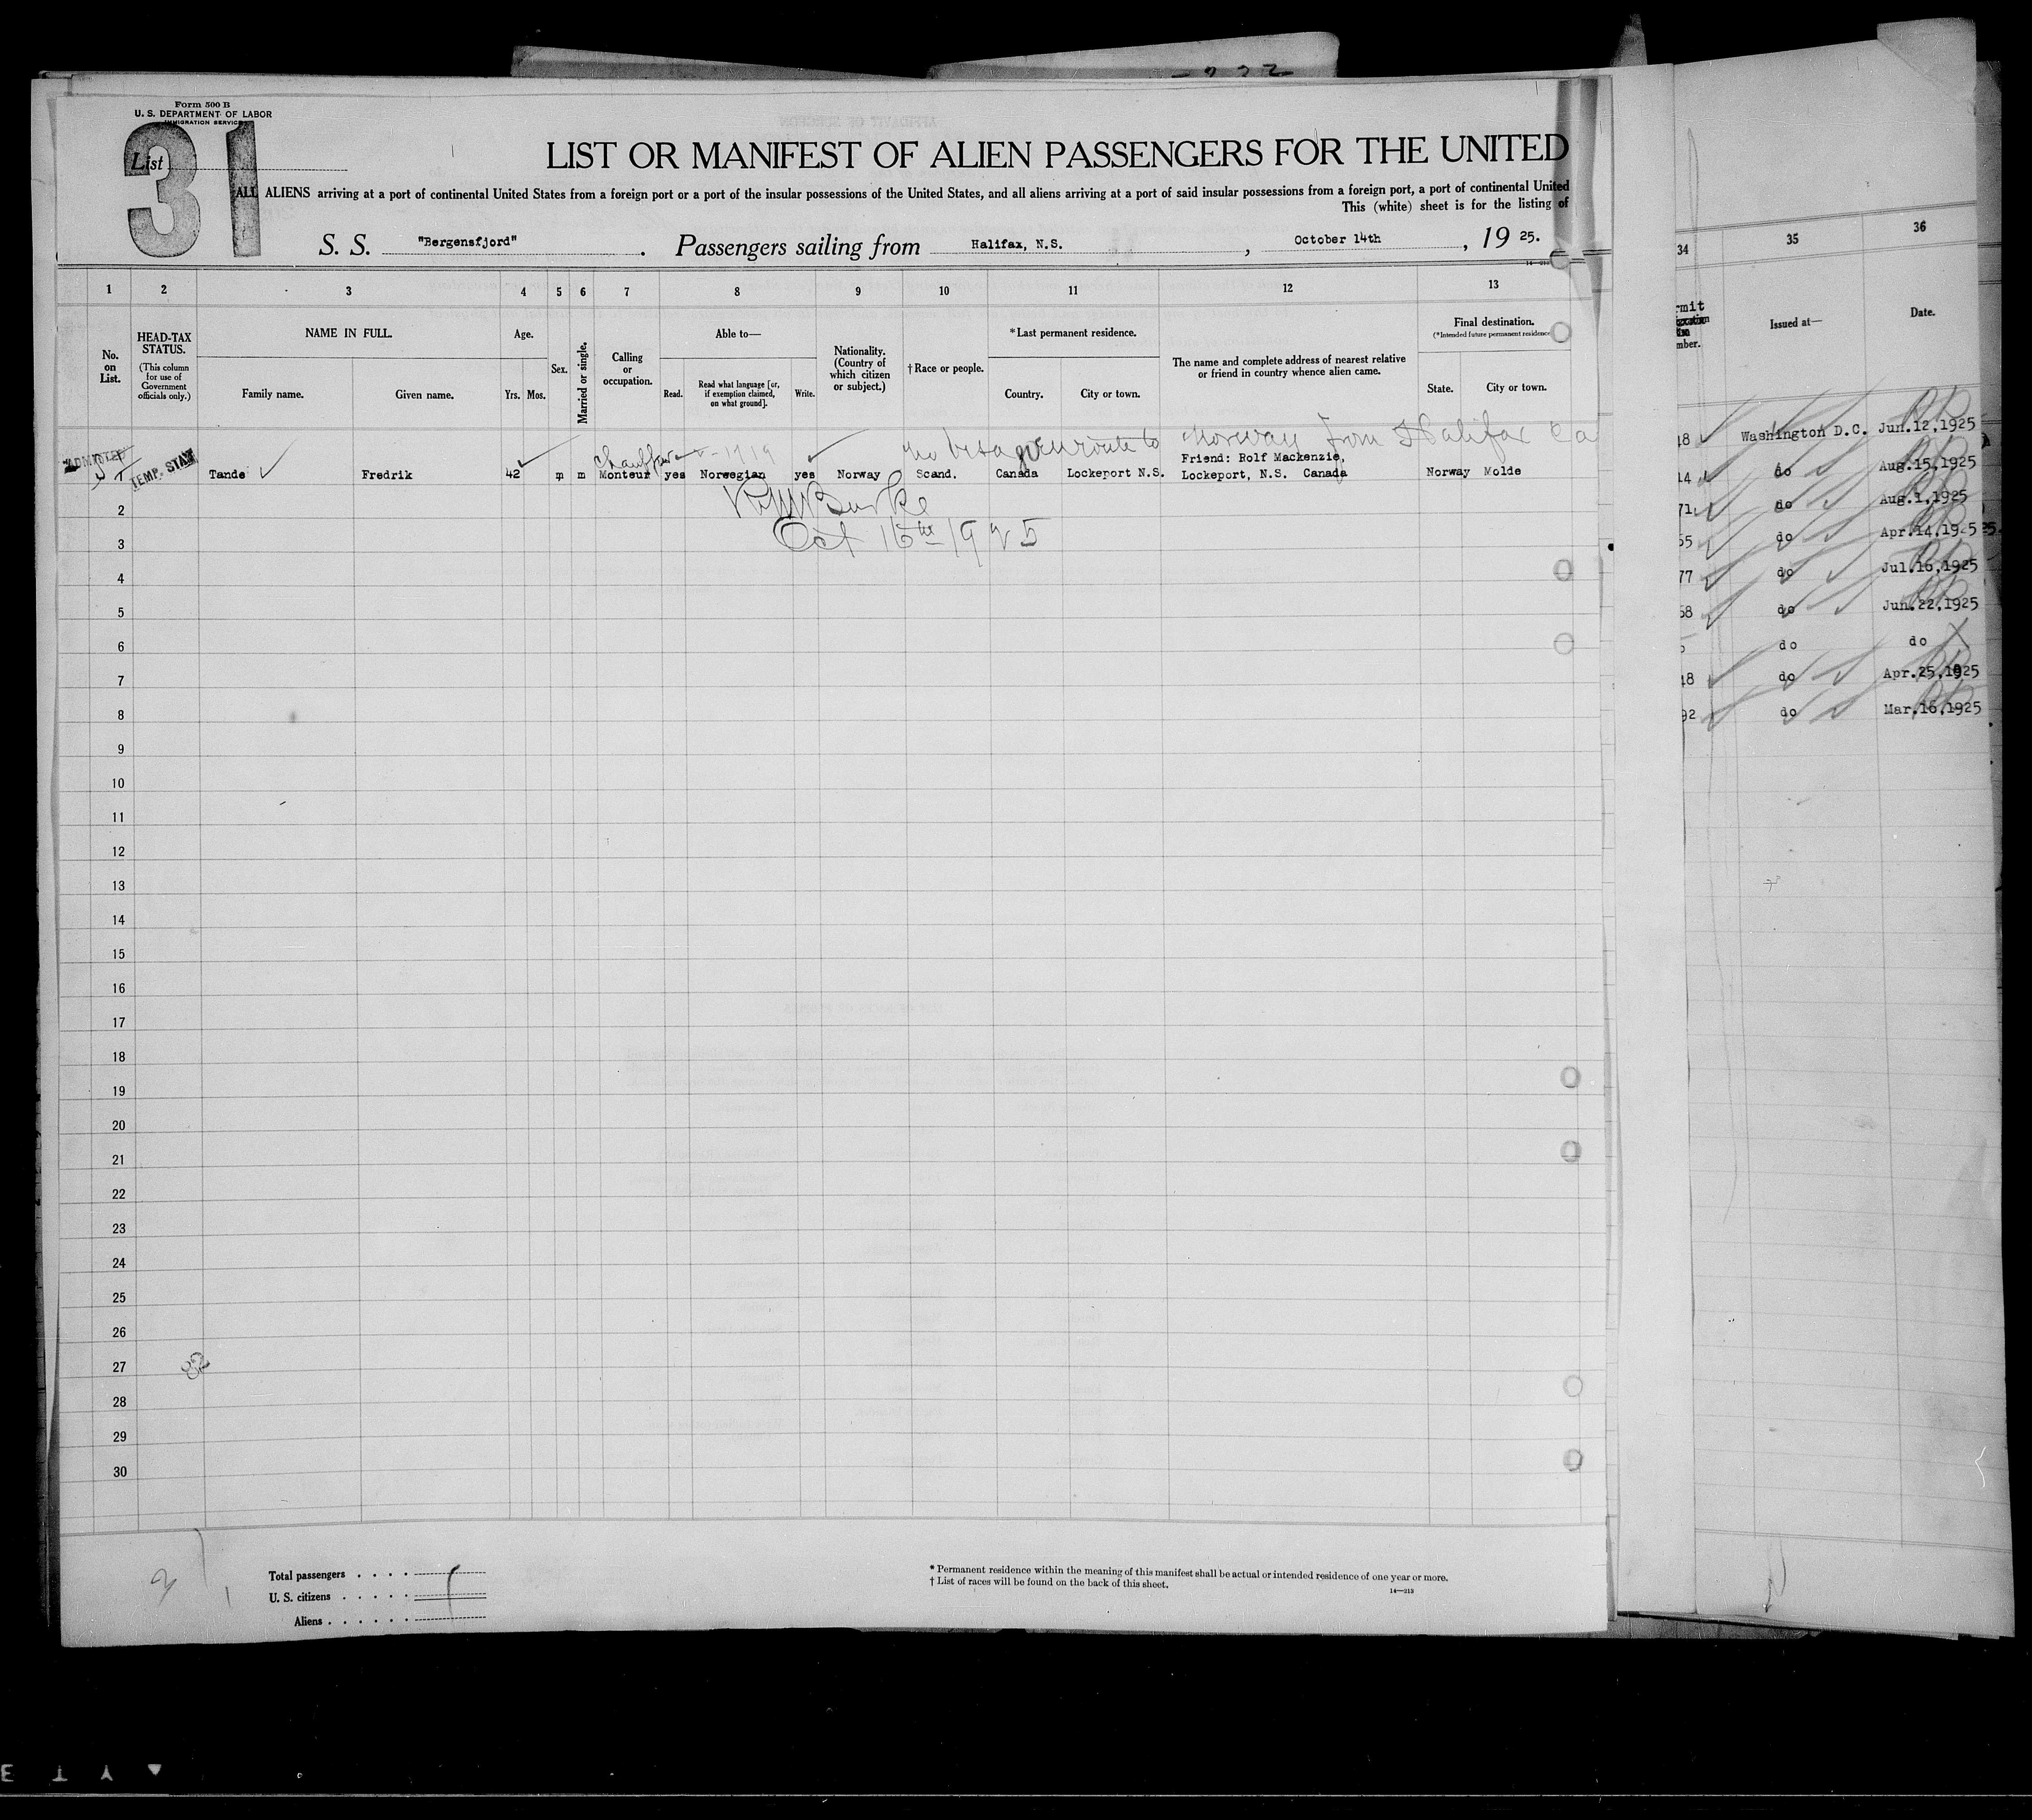 Form 500 B
U. S. DEPARTMENT OF LABOR
IMMIGRATION SERVICE
31
List
LIST OR MANIFEST OF ALIEN PASSENGERS FOR THE UNITED
ALL ALIENS arriving at a port of continental United States from a foreign port or a port of the insular possessions of the United States, and all aliens arriving at a port of said insular possessions from a foreign port, a port of continental United
This (white) sheet is for the listing of
S. S. "Bergensfjord". Passengers sailing from Halifax, N.S., October 14th, 19 25.
1 2 3 4 5 6 7 8 9 10 11 12 13
No. on List.
HEAD-TAX STATUS.
(This column for use of Government officials only.)
NAME IN FULL.
Family name. Given name.
Age.
Yrs. Mos.
Sex.
Married or single.
Calling or occupation.
Able to—
Read. Read what language [or, if exemption claimed, on what ground]. Write.
Nationality. (Country of which citizen or subject.)
†Race or people.
*Last permanent residence.
Country. City or town.
The name and complete address of nearest relative or friend in country whence alien came.
Final destination.
(*Intended future permanent residence
State. City or town.
Chauffeur
no visa enroute to Norway from Halifax Ca
ADMITTED TEMP. STAY Tande Fredrik 42 m m Monteur yes Norwegian yes Norway Scand. Canada Lockeport N.S. Friend: Rolf Mackenzie, Lockeport, N.S. Canada Norway Molde
Burke
Oct 16th 1925
2
3
4
5
6
7
8
9
10
11
12
13
14
15
16
17
18
19
20
21
22
23
24
25
26
27
28
29
30
Total passengers
U. S. citizens
Aliens
* Permanent residence within the meaning of this manifest shall be actual or intended residence of one year or more.
† List of races will be found on the back of this sheet.
14—213
34 35 36
Issued at— Date.
48 Washington D.C. Jun.12,1925
14 do Aug.15,1925
71 do Aug.1,1925
55 do Apr.14,1925
77 do Jul.16,1925
68 do Jun.22,1925
do do
48 do Apr.25,1925
92 do Mar.16,1925